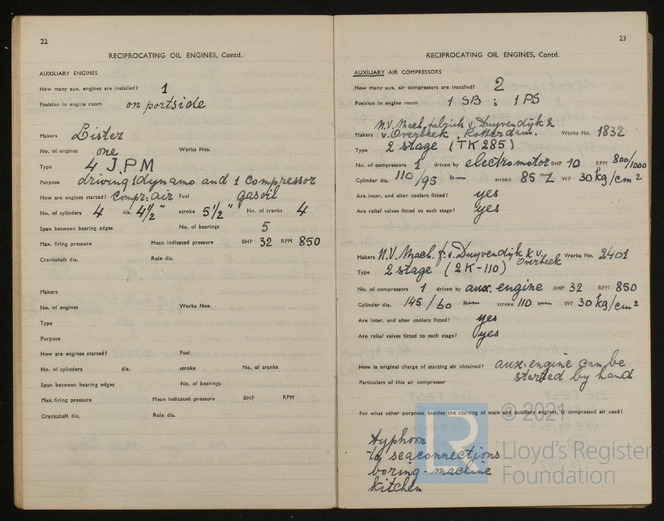 22
RECIPROCATING OIL ENGINES, Contd.
AUXILIARY ENGINES
How many aux. engines are installed? 1
Position in engine room on portside
Makers Lister
No. of engines one Works Nos.
Type 4 J.P.M
Purpose driving 1 dynamo and 1 compressor
How are engines started? Compr: air Fuel gasoil
No. of cylinders 4 dia. 4½" stroke 5½" No. of cranks 4
Span between bearing edges No. of bearings 5
Max. firing pressure Mean indicated pressure BHP 32 RPM 850
Crankshaft dia. Rule dia.
Makers
No. of engines Works Nos.
Type
Purpose
How are engines started? Fuel
No. of cylinders dia. stroke No. of cranks
Span between bearing edges No. of bearings
Max. firing pressure Mean indicated pressure BHP RPM
Crankshaft dia. Rule dia.
23
RECIPROCATING OIL ENGINES, Contd.
AUXILIARY AIR COMPRESSORS
How many aux. air compressors are installed? 2
Position in engine room 1 SB ; 1 PS
N.V. Mach. fabriek v. Duyvendijk &
Makers v. Overbeek. Rotterdam. Works No. 1832
Type 2 stage (TK285)
No. of compressors 1 driven by electromotor BHP 10 RPM 800/1000
Cylinder dia. 110/95 mm stroke 85 WP 30 kg/cm²
Are inter, and after coolers fitted? yes
Are relief valves fitted to each stage? yes
Makers N.V. Mach. f. v. Duyvendijk & v. Overbeek Works No. 2401
Type 2 stage (2K-110)
No. of compressors 1 driven by aux. engine BHP 32 RPM 850
Cylinder dia. 145/60 mm stroke 110 mm WP 30 kg/cm²
Are inter, and after coolers fitted? yes
Are relief valves fitted to each stage? yes
How is original charge of starting air obtained? aux: engine can be
Particulars of this air compressor started by hand
For what other purposes besides the starting of main and auxiliary engines, is compressed air used?
typhoon
to seaconnections
boring-machine
kitchen
© 2021
LR
Lloyd's Register
Foundation